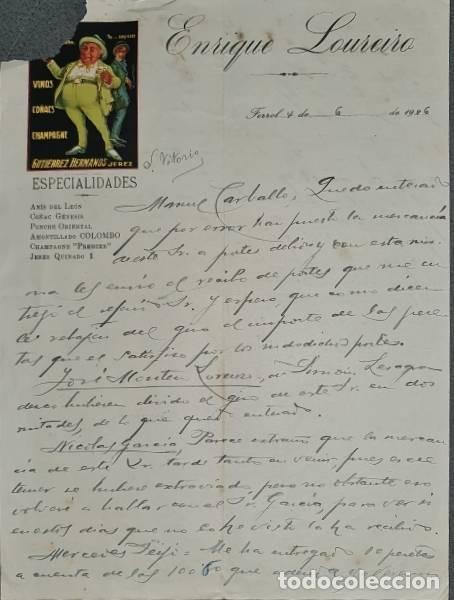 Enrique Loureiro
VINOS
COÑACS
CHAMPAGNE
GUTIERREZ HERMANOS JEREZ
Ferrol 4 de 6 de 1926
S. Vitorio
ESPECIALIDADES
ANÍS DEL LEÓN
COÑAC GÉNESIS
PONCHE ORIENTAL
AMONTILLADO COLOMBO
CHAMPAGNE "PREMIER"
JEREZ QUINADO 1
Manuel Carballo, Quedo enterado
que por error han puesto la mercancia
de este Sr. a portes debidos y con esta mis
ma les envio el recibo de portes que me en
tregó el Sr. y espero, que como dicen
le rebajen del giro el importe de las pese
tas que el satisfizo por los portes.
José Lorenzo, Simón
hubiesen dividido el giro de este Sr. en dos
mitades, de lo que quedo enterado.
Nicolas García, Parece extraño que la mercan
cia de este Sr. tarde tanto en venir, pues es de
temer se hubiese extraviado, pero no obstante eso
volveré a hablar con el Sr. García para ver si
en estos días que no le he visto la ha recibido.
Mercedes = Me ha entregado 10 pesetas
a cuenta de las 100 que
todocoleccion.net